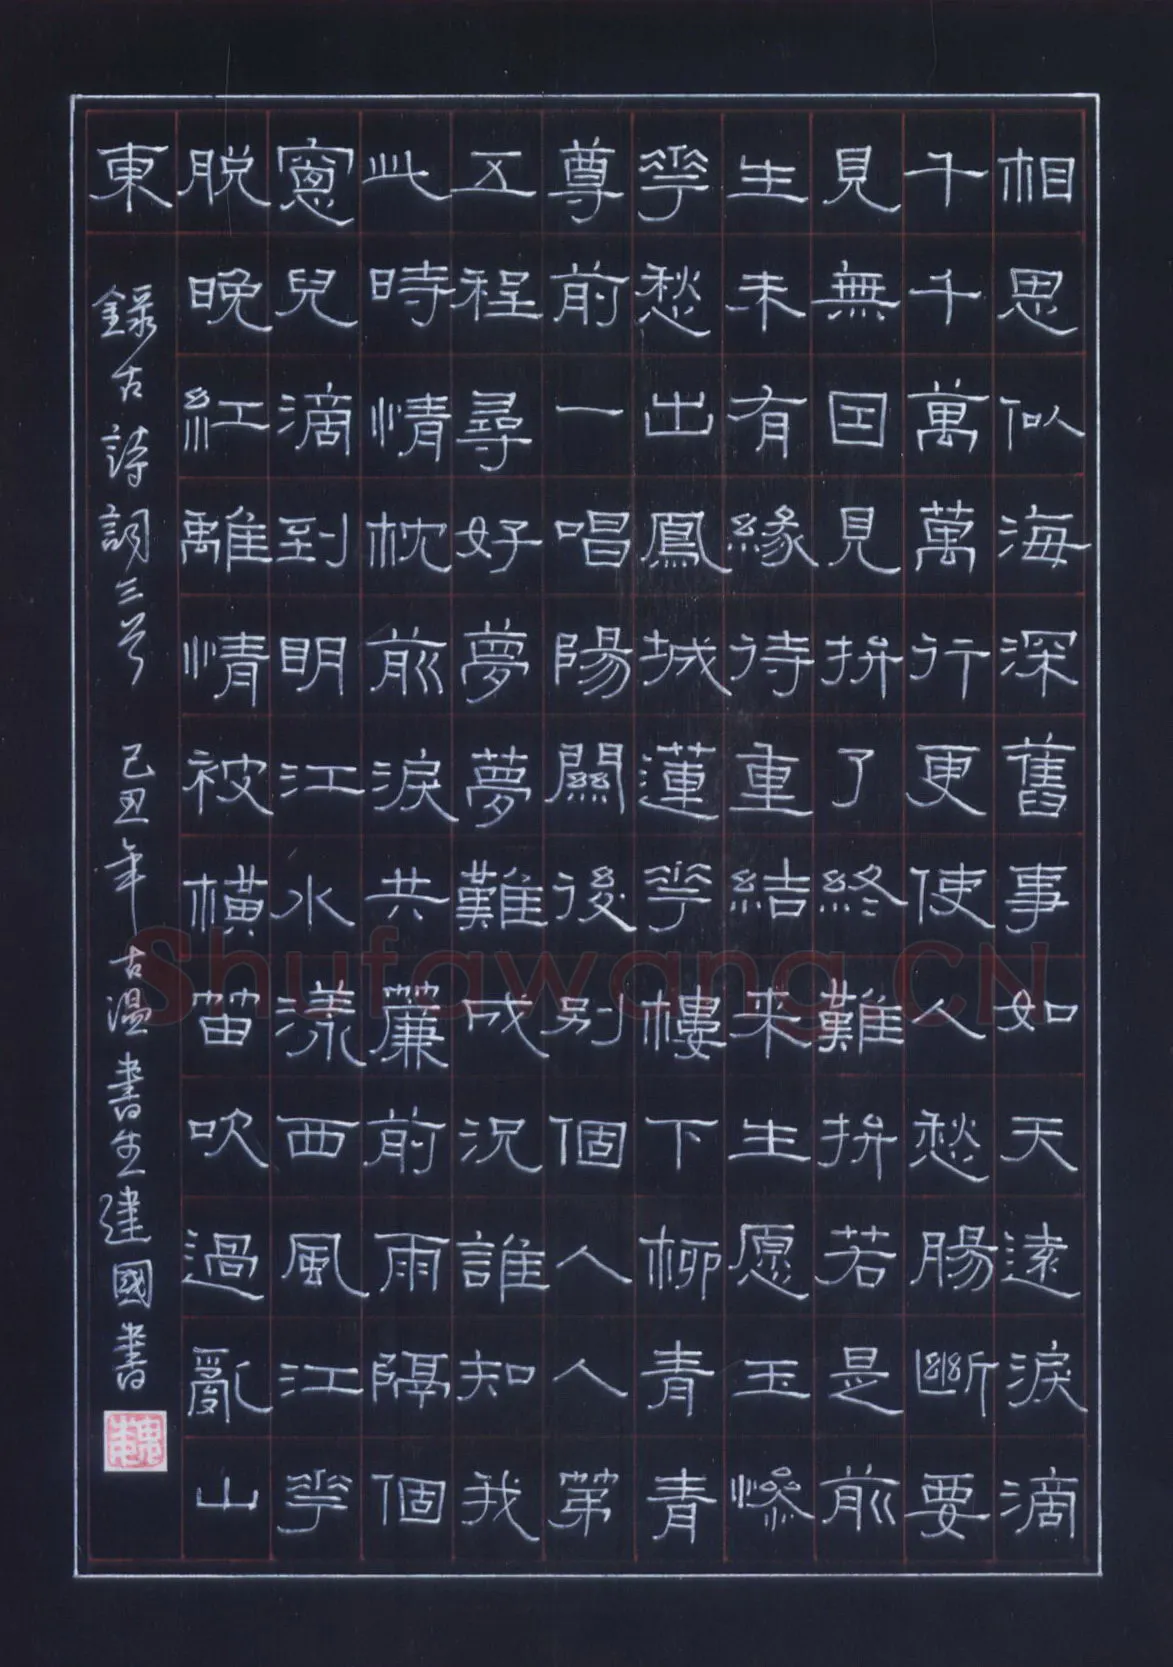 相思似海深舊事如天遠淚滴
千千萬萬行更使人愁腸斷要
見無因見拚了終難拚若是前
生未有緣待重結來生愿玉慘
花愁出鳳城蓮花樓下柳青青
尊前一唱陽關後別個人人第
五程尋好夢夢難成況誰知我
此時情枕前淚共簾前雨隔個
窗兒滴到明江水漾西風江花
脱晚紅離情被橫笛吹過亂山
東
錄古詩詞三首 己丑年古溫書生建國書
Shufawang.CN